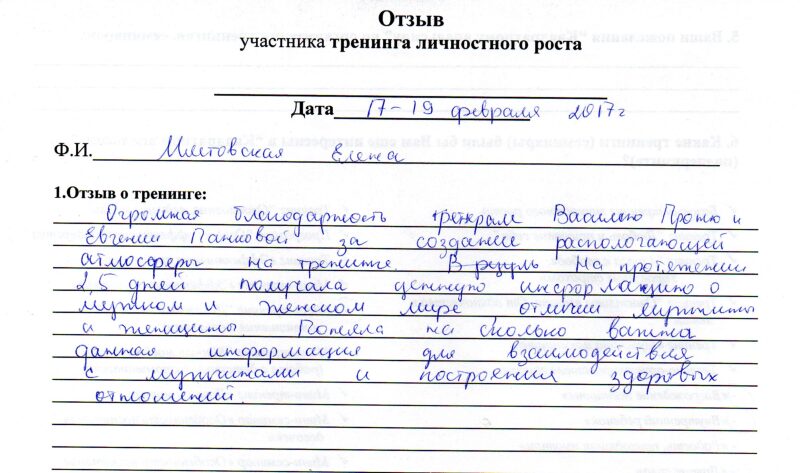 Отзыв
участника тренинга личностного роста
Дата 17-19 февраля 2017г
Ф.И. Елена
1.Отзыв о тренинге:
Огромная благодарность тренерам Василию и
Евгении за создание распологающей
атмосферы на тренинге. В резуль На протяжении
2,5 дней получала ценную информацию о
мужском и женском мире, отличии мужчины
и женщины. Поняла на сколько важна
данная информация для взаимодействия
с мужчинами и построения здоровых
отношений